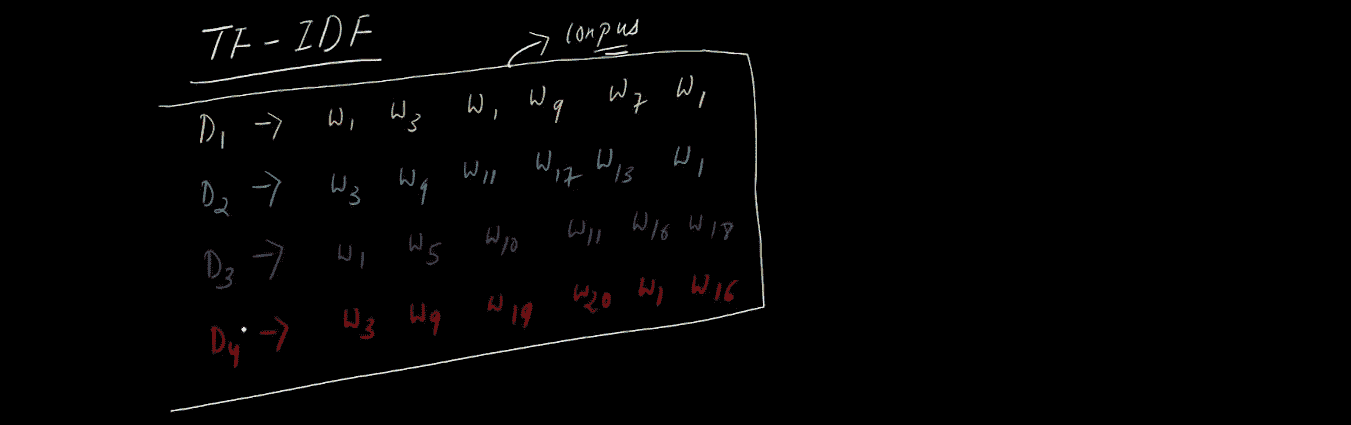 TF-IDF
corpus
D1 → W1 W3 W1 W9 W7 W1
D2 → W3 W9 W11 W17 W13 W1
D3 → W1 W5 W10 W11 W16 W18
D4 → W3 W9 W19 W20 W1 W16